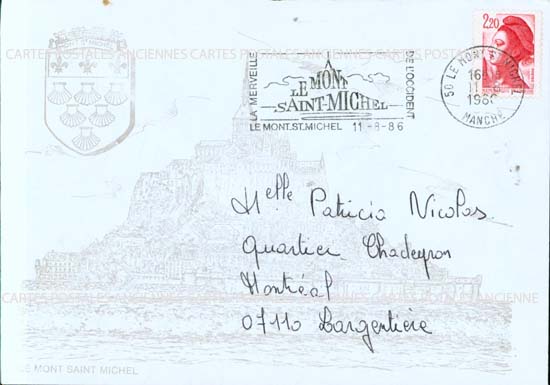 CARTES POSTALES ANCIENNES CARTES POSTALES ANCIENNES CARTES POSTALES
2,20
LA MERVEILLE
LE MONT
SAINT-MICHEL
DE L'OCCIDENT
LE MONT.ST.MICHEL 11-8-86
50 LE MONT ST MICHEL
16
11
1986
MANCHE
Melle Patricia Nicolas
Quartier Chadeyron
Montréal
CARTES POSTALES ANCIENNES CARTES POSTALES ANCIENNES CARTES POSTALES ANCIENNE
07110 Largentière
LE MONT SAINT MICHEL